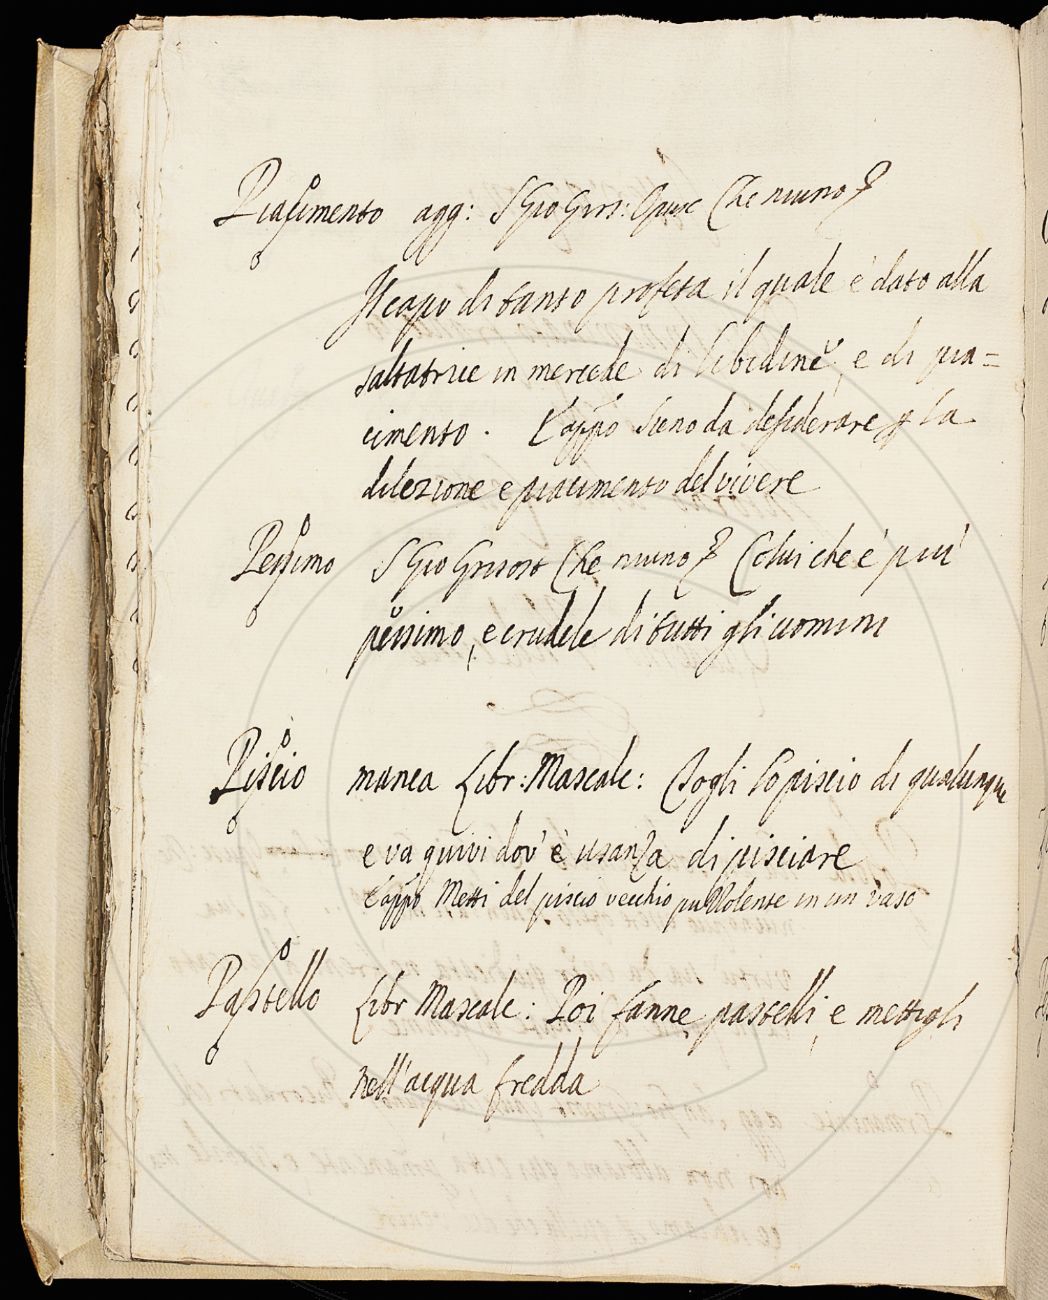 Piacimento agg: S Gio Gris: Opusc Che niuno
Il capo di santo profeta il quale è dato alla
saltatrice in mercede di libidine, e di pia=
cimento. E appò sieno da desiderare la
dilezione e piacimento del vivere
Pessimo S Gio Grisost Che niuno Colui che è più
pessimo, e crudele di tutti gli uomini
Piscio manca Libr: Mascalc: Togli lo piscio di qualunque
e va quivi dov' è usanza di pisciare
E appò Metti del piscio vecchio putolente in un vaso
Pastello Libr Mascalc: Poi fanne pastelli, e mettigli
nell' acqua fredda